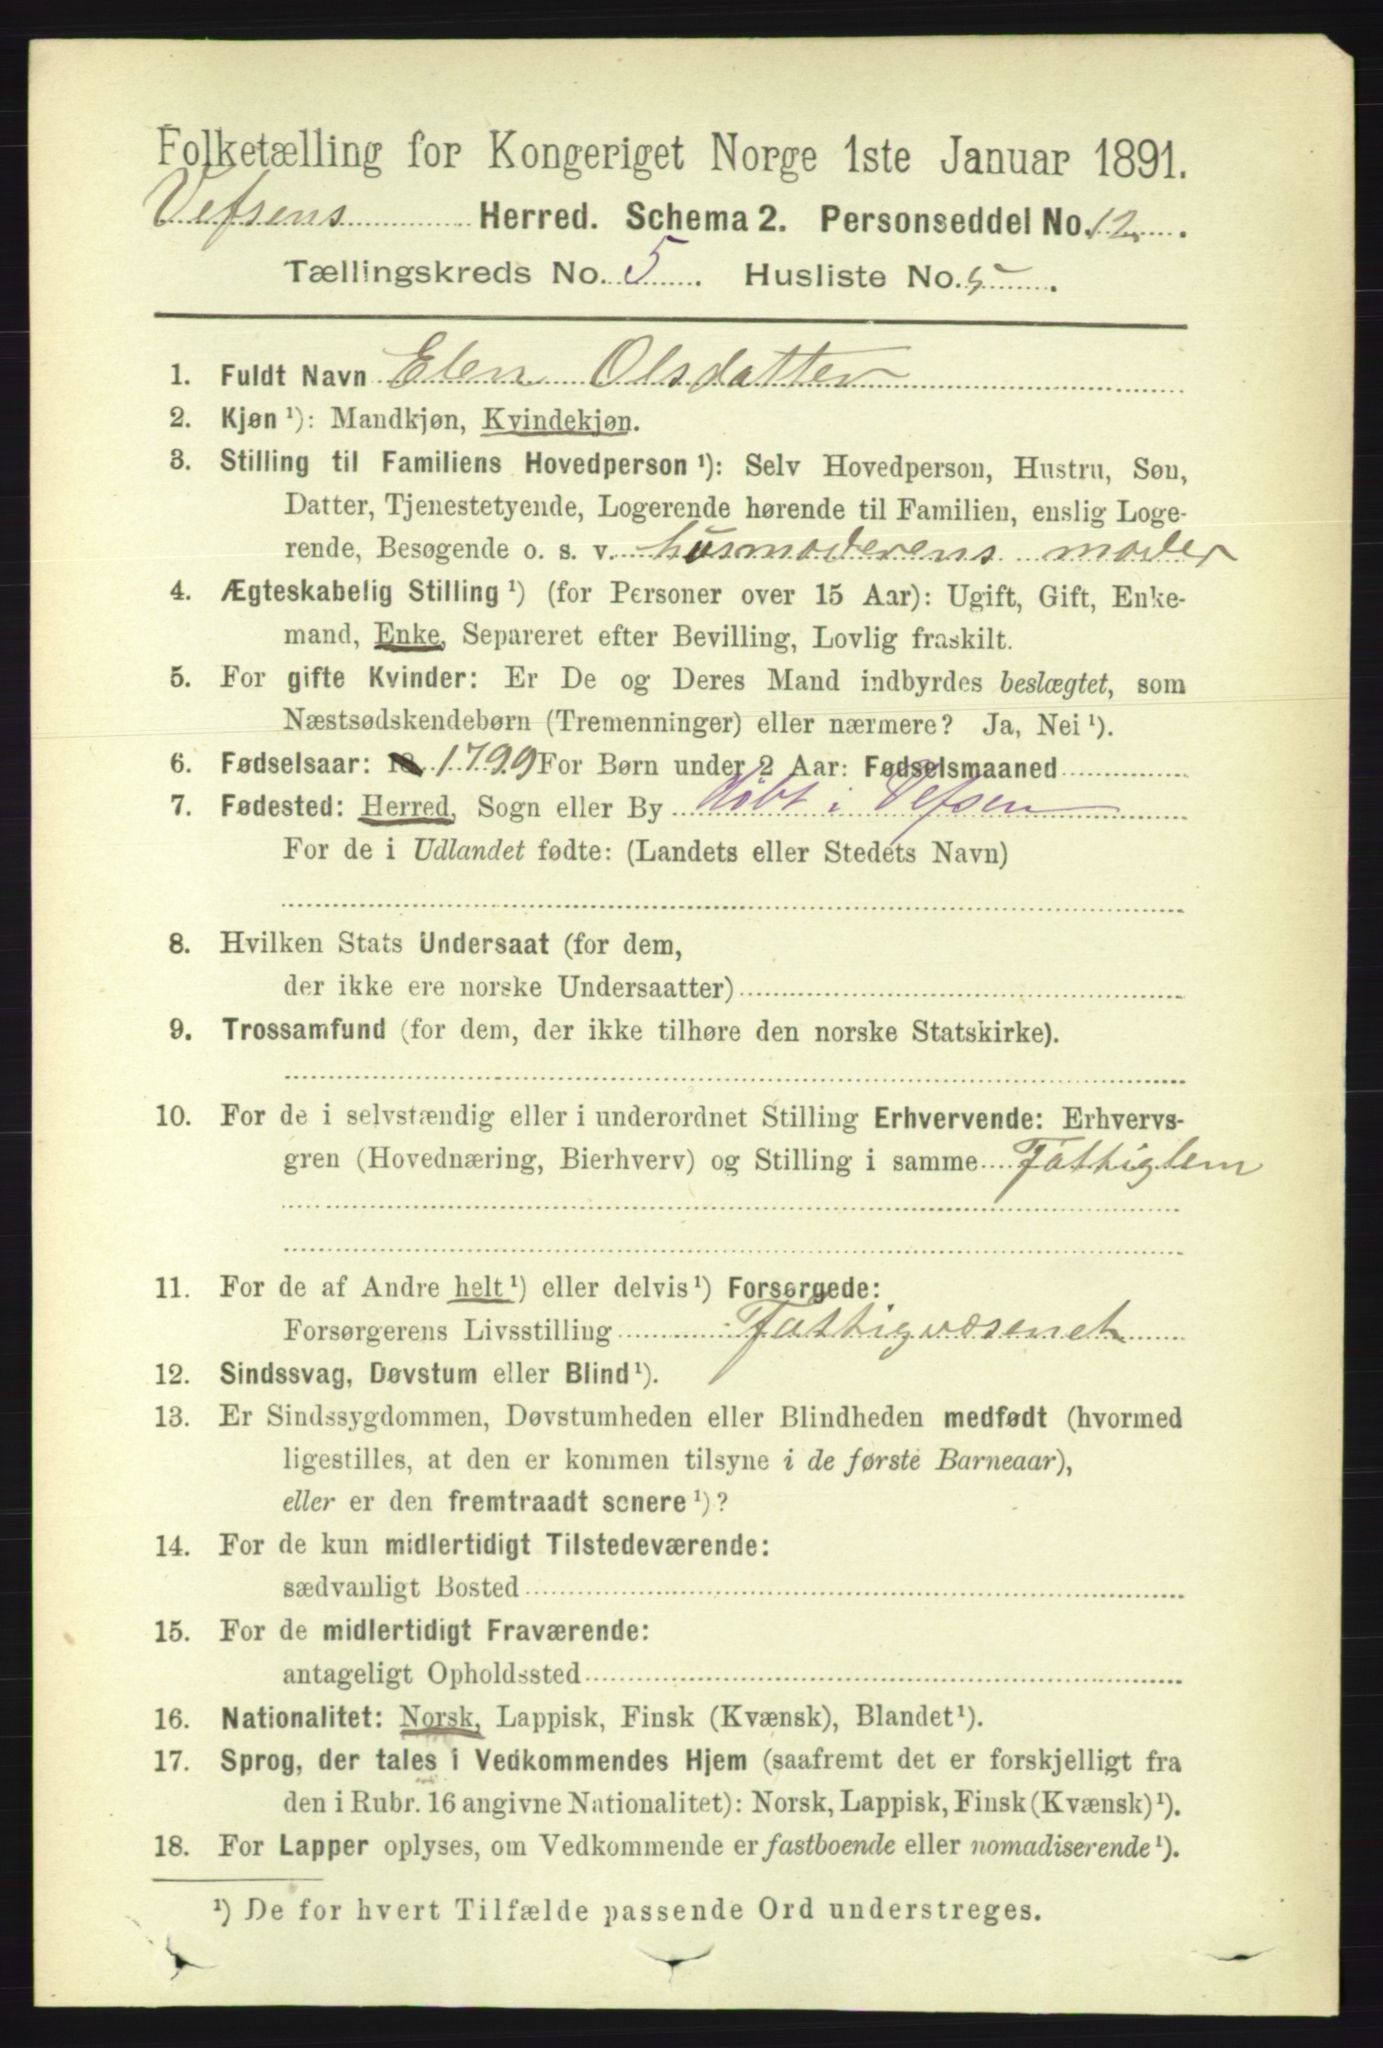 Folketælling for Kongeriget Norge 1ste Januar 1891.
Vefsens Herred. Schema 2. Personseddel No. 12.
Tællingskreds No. 5. Husliste No. 5.
1. Fuldt Navn Elen Olsdatter
2. Kjøn ¹): Mandkjøn, Kvindekjøn.
3. Stilling til Familiens Hovedperson ¹): Selv Hovedperson, Hustru, Søn,
Datter, Tjenestetyende, Logerende hørende til Familien, enslig Loge-
rende, Besøgende o. s. v. husmoderens moder
4. Ægteskabelig Stilling ¹) (for Personer over 15 Aar): Ugift, Gift, Enke-
mand, Enke, Separeret efter Bevilling, Lovlig fraskilt.
5. For gifte Kvinder: Er De og Deres Mand indbyrdes beslægtet, som
Næstsødskendebørn (Tremenninger) eller nærmere? Ja, Nei ¹).
6. Fødselsaar: 18 1799 For Børn under 2 Aar: Fødselsmaaned
7. Fødested: Herred, Sogn eller By Døbt i Vefsen
For de i Udlandet fødte: (Landets eller Stedets Navn)
8. Hvilken Stats Undersaat (for dem,
der ikke ere norske Undersaatter)
9. Trossamfund (for dem, der ikke tilhøre den norske Statskirke).
10. For de i selvstændig eller i underordnet Stilling Erhvervende: Erhvervs-
gren (Hovednæring, Bierhverv) og Stilling i samme Fattiglem
11. For de af Andre helt ¹) eller delvis ¹) Forsørgede:
Forsørgerens Livsstilling Fattigvæsenet
12. Sindssvag, Døvstum eller Blind ¹).
13. Er Sindssygdommen, Døvstumheden eller Blindheden medfødt (hvormed
ligestilles, at den er kommen tilsyne i de første Barneaar),
eller er den fremtraadt senere ¹)?
14. For de kun midlertidigt Tilstedeværende:
sædvanligt Bosted
15. For de midlertidigt Fraværende:
antageligt Opholdssted
16. Nationalitet: Norsk, Lappisk, Finsk (Kvænsk), Blandet ¹).
17. Sprog, der tales i Vedkommendes Hjem (saafremt det er forskjelligt fra
den i Rubr. 16 angivne Nationalitet): Norsk, Lappisk, Finsk (Kvænsk) ¹).
18. For Lapper oplyses, om Vedkommende er fastboende eller nomadiserende ¹).
¹) De for hvert Tilfælde passende Ord understreges.